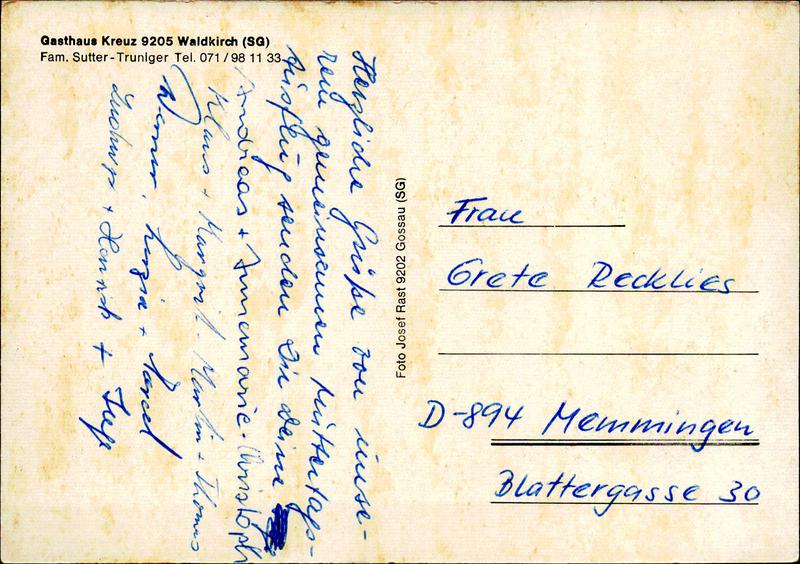 Gasthaus Kreuz 9205 Waldkirch (SG)
Fam. Sutter-Truniger Tel. 071/98 11 33
Herzliche Grüße von unse-
rem gemeinsamen Muttertags-
ausflug senden Dir Deine
Andreas + Annemarie - Christoph
Klaus + Margrit - Martin + Thomas
Werner, + Marcel
+
Foto Josef Rast 9202 Gossau (SG)
Frau
Grete Recklies
D-894 Memmingen
Blattergasse 30